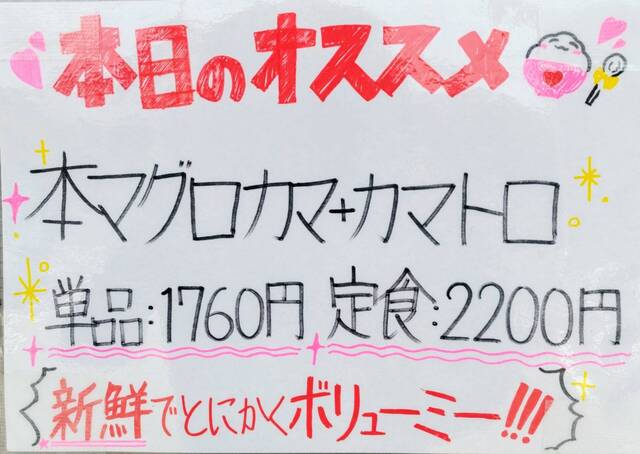 本日のオススメ
本マグロカマ+カマトロ
単品:1760円 定食:2200円
新鮮でとにかくボリューミー!!!